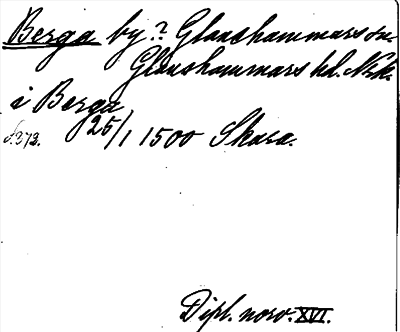 Berga by? Glanshammars sn.
Glanshammars hd. Nrk.
i Berga
25/1 1500 Skara.
s. 373.
Dipl. norv. XVI.